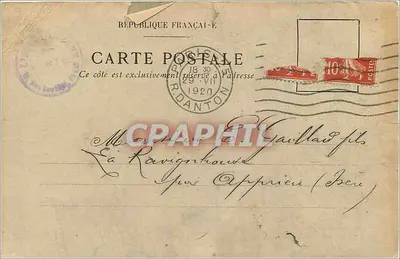 RÉPUBLIQUE FRANÇAISE
CARTE POSTALE
Ce côté est exclusivement réservé à l'adresse
PARIS VI
18 30
29 · VII
1920
R. DANTON
10
POSTES
CPARAMA
Monsieur Gaillard fils
La Ravignhouse
par Apprieu (Isère)